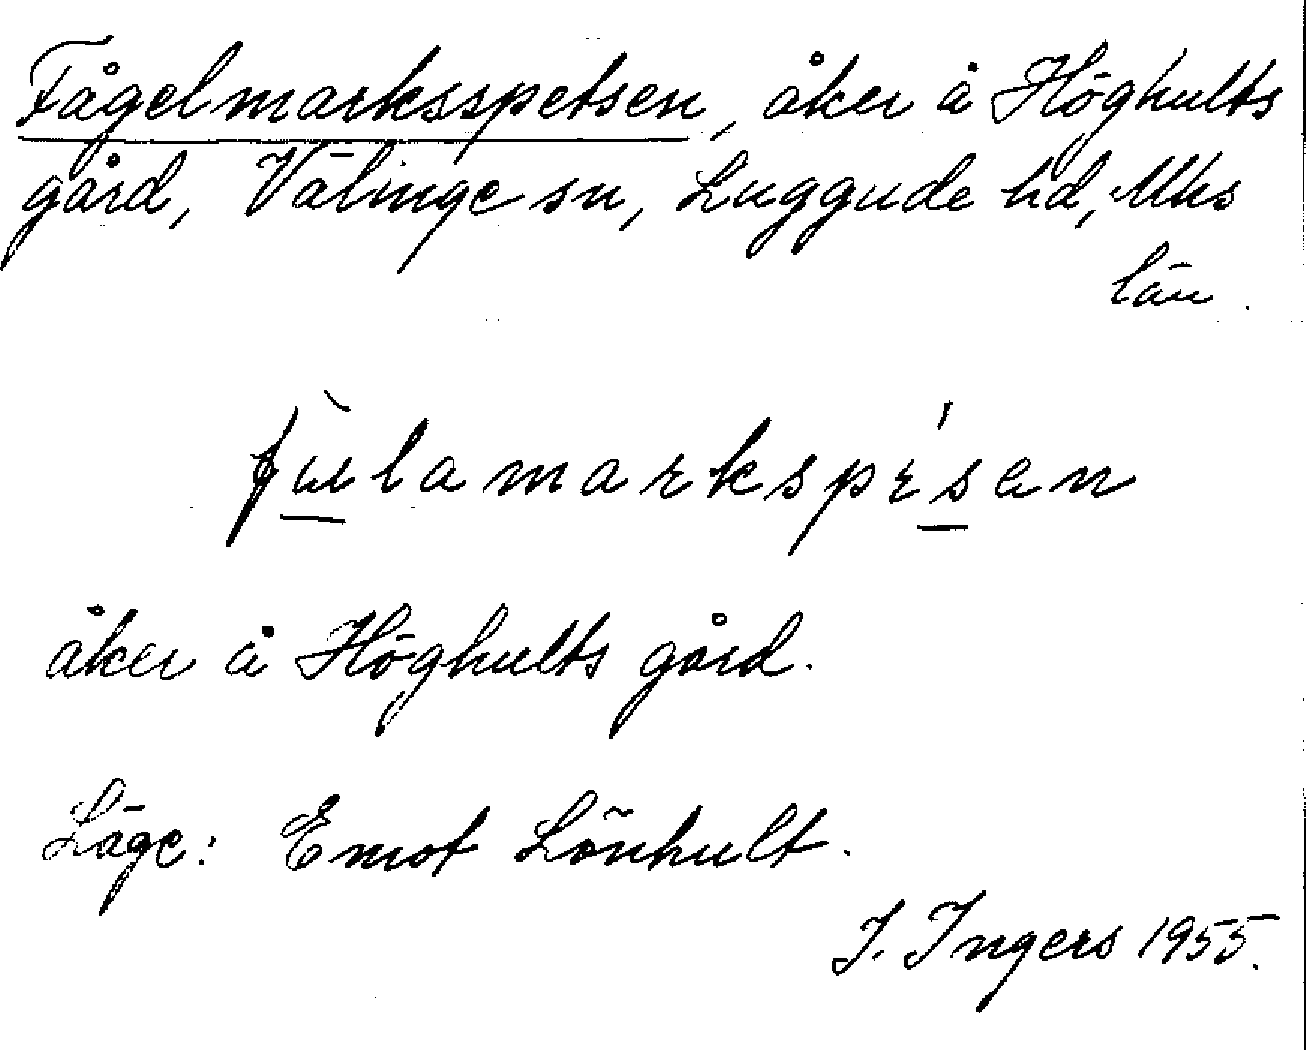 Fågelmarksspetsen, åker å Höghults
gård, Välinge sn, Luggude hd, Mhs
län.
fùlamarkspésan
åker å Höghults gård.
Läge: Emot Lönhult.
I. Ingers 1955.